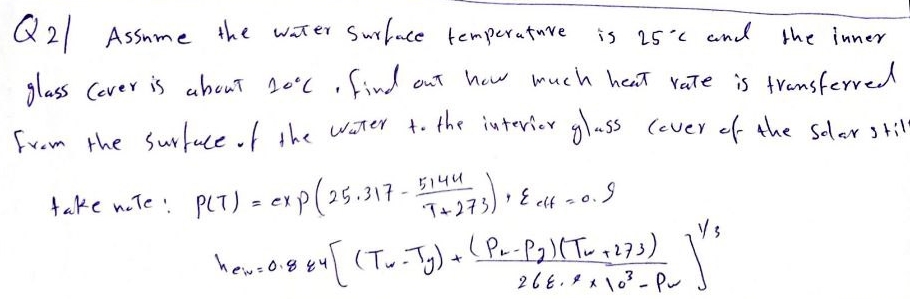 Q2/ Assume the water surface temperature is 25°C and the inner
glass cover is about 20°C, find out how much heat rate is transferred
from the surface of the water to the interior glass cover of the solar still
take note: P(T) = exp(25.317 - 5144 / T+273), ε eff = 0.9
hew = 0.884[(Tw - Tg) + (Pw - Pg)(Tw + 273) / 268.9 × 10³ - Pw]^1/3